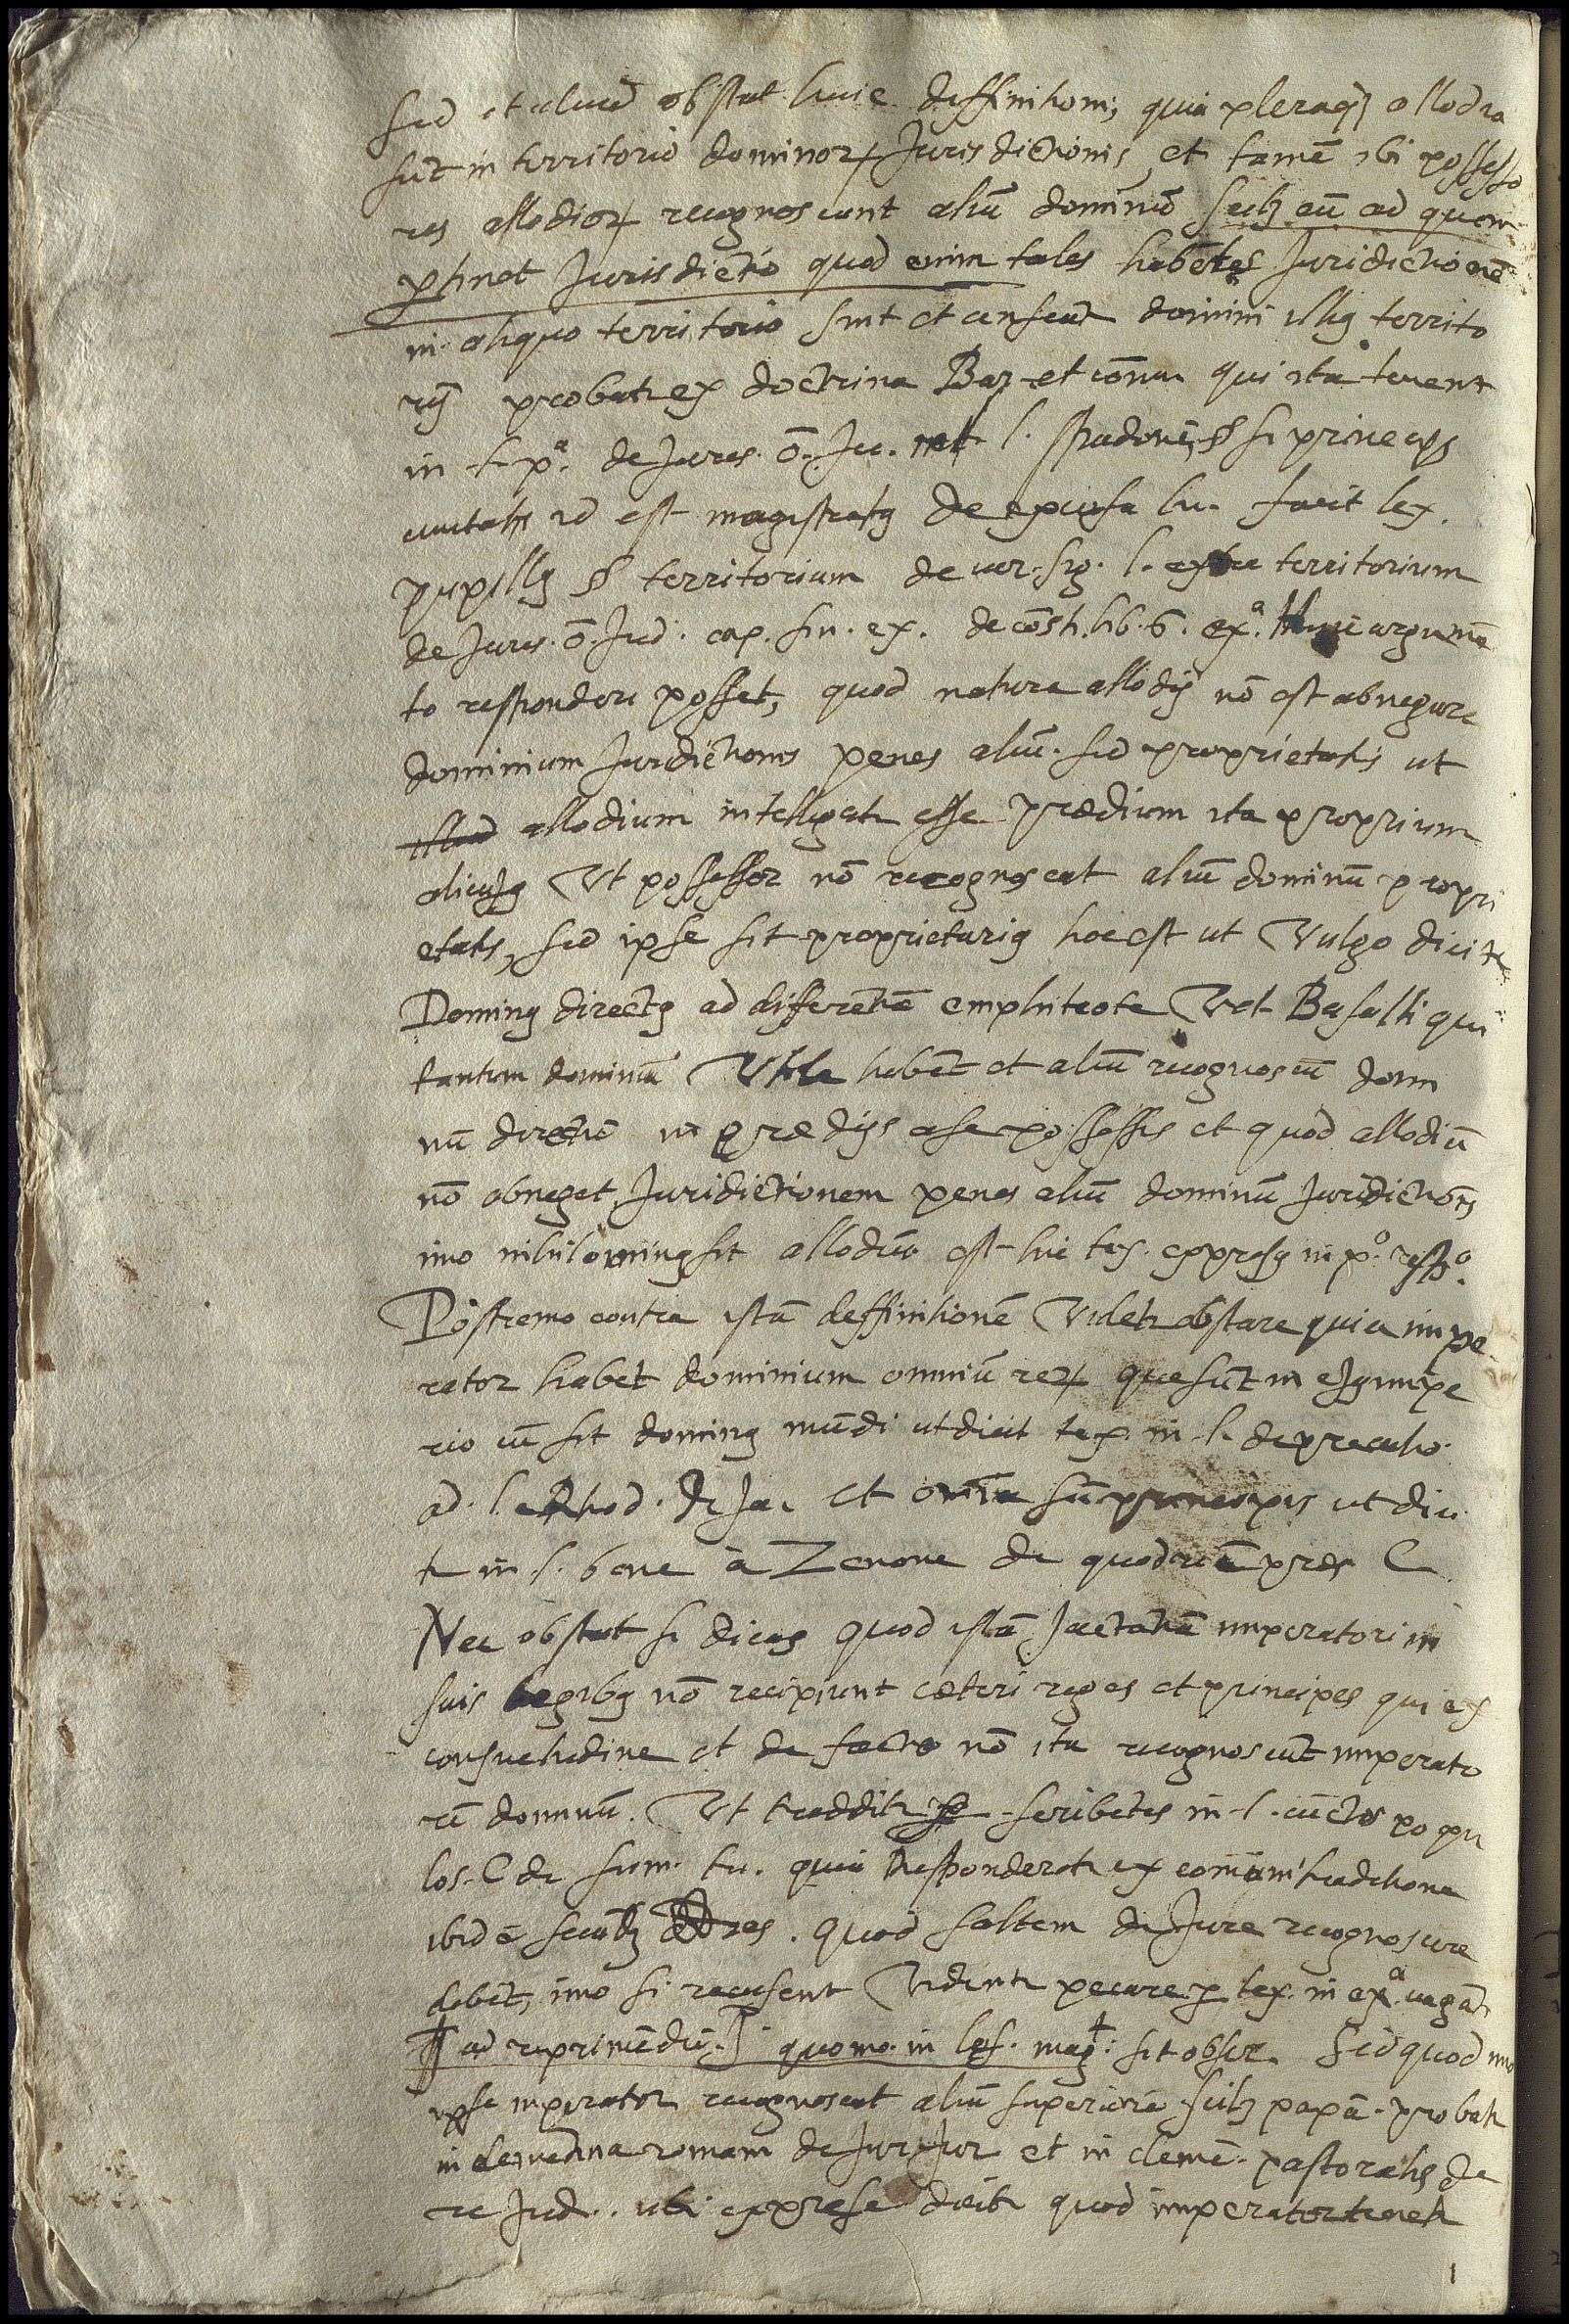 sed et aliud obstat huic deffinitioni, quia pleraq; allodia
sũt in territorio dominorꝝ Jurisdictionis, et tamẽ ibi possesso
res allodiorꝝ recognoscunt aliũ dominũ scilꝫ eũ ad quem
ꝑtinet Jurisdictio quod enim tales habẽtes Juridictionẽ
in aliquo territorio sint et censeant domini illiꝰ territo
rij probatr ex doctrina Bar. et cõmm. qui ita tenent
in l. pª. de Juris. õ. Ju. l. spadonẽ § si princeps
ciuitatis id est magistratꝰ de excusa tu. facit lex.
pupillꝰ § territorium de uer. sig. l. extra territorium
de Juris. õ. Jud. cap. fin. ex. de cõsti. lib. 6. Huic argumẽ
to responderi posset, quod natura allodij nõ est abnegare
dominium Juridictionis penes aliũ. sed proprietatis ut
allodium intelligatr esse prædium ita proprium
alicuiꝰ Vt possessor nõ recognoscat aliũ dominũ propri
etatis, sed ipse sit proprietariꝰ hoc est ut Vulgo dicitr
Dominꝰ directꝰ ad differẽtiã emphiteote Vel Basalli qui
tantum dominiũ Vtile habẽt et aliũ recognoscũt domi
nũ directũ in prædijs a se possessis et quod allodiũ
nõ abneget Juridictionem penes aliũ dominũ Juridictiõis
imo nihilominꝰ sit allodiũ est hic tex. expresꝰ in pº. respº.
Postremo contra istã deffinitionẽ Videtr obstare quia impe
rator habet dominium omniũ rerꝝ que sũt in eiꝰ impe
rio cũ sit dominꝰ mũdi ut dicit tex. in l. deprecatio
ad. l. Rhod. de Ja. et omnia sũt principis ut dici
tr in l. bene à Zenone de quadriẽ. pres. C.
Nec obstat si dicas quod istã Jactantiã imperatori in
suis legibꝰ nõ recipiunt cæteri reges et principes qui ex
consuetudine et de facto nõ ita recognoscũt imperato
rẽ dominũ. Vt tradditr scribẽtes in l. cũctos popu
los. C de sum. tri. quia Respondetr ex comuni traditione
ibidẽ secũdꝫ res. quod saltem de Jure recognoscere
debẽt, imo si recusent Vidẽntr pecare ꝑ tex. in exª. uagãti
ad reprimẽdũ. quomo. in les. mag: sit obser. Sed quod imo
ipse imperator recognoscat aliũ superiorẽ scilꝫ papã. probatr
in clementina romani de Jur Jur et in clemẽ. pastoralis de
re Jud. ubi exprese dicitr quod imperator tenetr
1